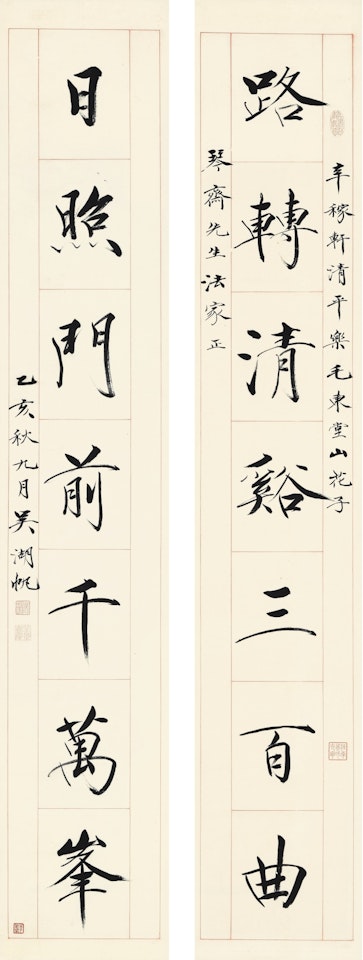 辛稼軒清平樂毛東堂山花子
路轉清谿三百曲
琴齋先生法家正
日照門前千萬峯
乙亥秋九月吳湖帆